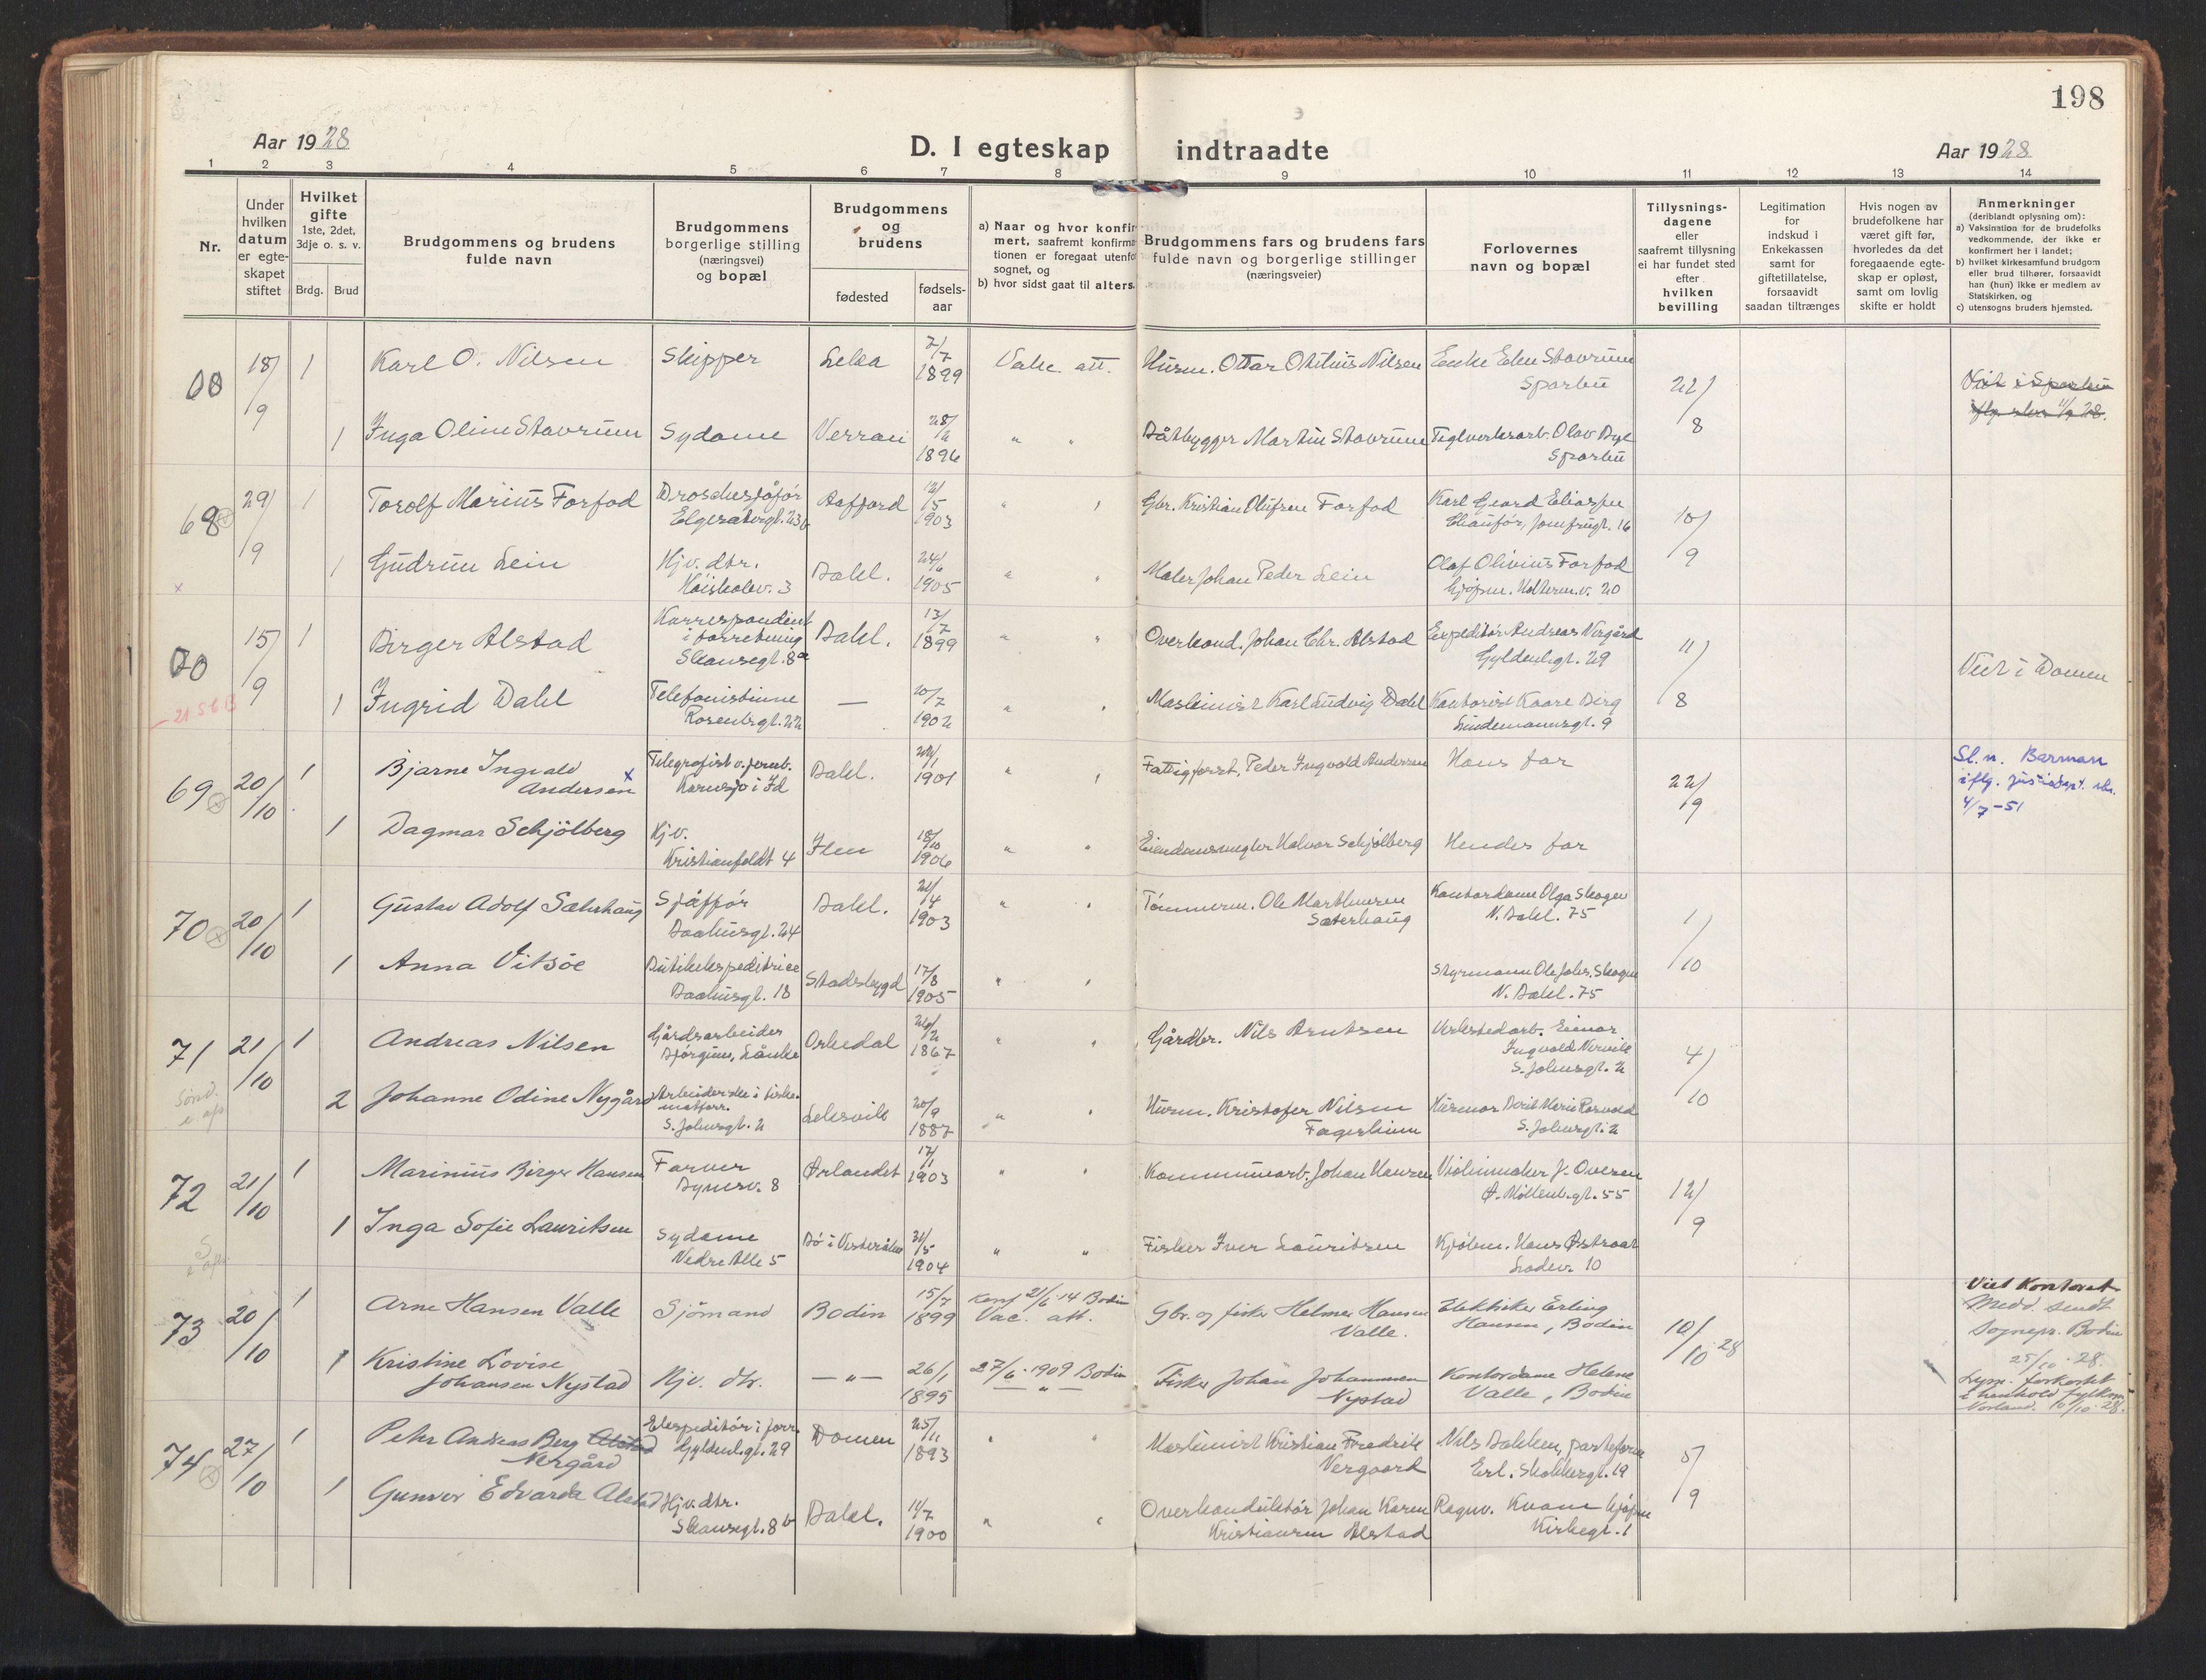 198
Aar 1928
D. I egteskap indtraadte
Aar 1928
1 2 3 4 5 6 7 8 9 10 11 12 13 14
Nr.
Under hvilken datum er egteskapet stiftet
Hvilket gifte 1ste, 2det, 3dje o. s. v.
Brdg. Brud
Brudgommens og brudens fulde navn
Brudgommens borgerlige stilling (næringsvei) og bopæl
Brudgommens og brudens
fødested
fødselsaar
a) Naar og hvor konfirmert, saafremt konfirmationen er foregaat utenfor sognet, og
b) hvor sidst gaat til alters.
Brudgommens fars og brudens fars fulde navn og borgerlige stillinger (næringsveier)
Forlovernes navn og bopæl
Tillysningsdagene eller saafremt tillysning ei har fundet sted efter hvilken bevilling
Legitimation for indskud i Enkekassen samt for giftetillatelse, forsaavidt saadan tiltrænges
Hvis nogen av brudefolkene har været gift før, hvorledes da det foregaaende egteskap er opløst, samt om lovlig skifte er holdt
Anmerkninger
(deriblandt oplysning om):
a) Vaksination for de brudefolks vedkommende, der ikke er konfirmert her i landet;
b) hvilket kirkesamfund brudgom eller brud tilhører, forsaavidt han (hun) ikke er medlem av Statskirken, og
c) utensogns bruders hjemsted.
18/9 1 Karl O. Nilsen Skipper Leka 7/7 1899 Husm. Ottar Otilius Nilsen Enke Elen Stavrum Sparbu 22/8
1 Inga Oline Stavrum Sydame Verran 1896 Båtbygger Martin Stavrum Teglverksarb. Olav Sparbu
29/9 1 Torolf Marius Forfod Droschesjåfør Elgesætergt. 23b Aafjord 12/5 1903 Gbr. Kristian Olufsen Forfod Karl Jomfrugt. 16 10/9
1 Gudrun Lein Hjv. dtr. Høiskolev. 3 Bakl. 24/6 1905 Maler Johan Peder Lein Olaf Olivius Forfod Kjøpm. 20
70 15/9 1 Birger Alstad Korrespondent i forretning Skansegt. 8a Bakl. 13/7 1899 Overkond. Johan Chr. Alstad Expeditør Andreas Vergård Gyldenl.gt. 29 11/8 Viet i Domen
1 Ingrid Dahl Telefonistinne Rosenb.gt. 22 — 20/7 1902 Maskinist Karl Ludvig Dahl Kontorist Kaare Berg Lindemannsgt. 9
69 20/10 1 Bjarne Ingvald Andersen x Telegrafist v. jernb. Kornsjø i Id Bakl. 1901 Fattigforst. Peder Ingvold Andersen Hans far 22/9 Sl. n. Barman iflg. justisdept. skr. 4/7-51
1 Dagmar Schjölberg Hjv. Kristianfeldt 4 Ilen 18/10 1906 Eiendomsmegler Halvor Schjølberg Hendes far
70 20/10 1 Gustav Adolf Sæterhaug Sjåffør Baahusgt. 24 Bakl. 21/4 1903 Tømmerm. Ole Marthinsen Sæterhaug Kontordame Olga Skogen N. Bakl. 75 1/10
1 Anna Vitsøe Butikekspeditrice Baahusgt. 18 Stadsbygd 17/8 1905 Styrmann Ole Johs. Skogen N. Bakl. 75
71 21/10 1 Andreas Nilsen Gårdsarbeider Bjørgum, Lånke Orkedal 26/2 1867 Gårdbr. Nils Arntsen Verkstedarb. Einar Ingvald S. Johnsgt. 2 4/10
2 Johanne Odine Nygård Arbeiderske i S. Johnsgt. 2 Leksvik 20/9 1887 Husm. Kristofer Nilsen Fagerheim Husmor Berit Marie S. Johnsgt. 2
72 21/10 1 Marinius Birger Hansen Farver Bynesv. 8 Ørlandet 17/1 1903 Kommunearb. Johan Hansen Violinmaker J. Overen Ø. Møllenb.gt. 55 12/9
1 Inga Sofie Lauritsen Sydame Nedre Alle 5 Bø i Vesterålen 31/5 1904 Fisker Iver Lauritsen Kjøbm. Hans Østraat Ladev. 10
73 20/10 1 Arne Hansen Valle Sjömand Bodin 15/7 1899 Konf 21/6 14 Bodin Vac. att. Gbr. og fisker Helmer Hansen Valle. Elektriker Erling Hansen, Bodin 10/10 28 Viet Kontoret Medd. sendt Sognepr. Bodin 25/10 28. Lysn. forkortet i henhold fylkesm. Norland. 10/10 28.
1 Kristine Lovise Johansen Nystad Hjv. dtr. —"— 26/1 1895 27/6 1909 Bodin —"— Fisker Johan Johannsen Nystad Kontordame Helene Valle, Bodin
74 27/10 1 Petter Andreas Berg Alstad Nergård Ekspeditør i forr. Gyldenl.gt. 29 Domen 25/11 1893 Maskinist Kristian Fredrik Vergaard Nils Bakken, Erl. Skakkesgt. 19 5/9
1 Gunvor Edvarda Alstad Hjv. dtr. Skansegt. 8b Bakl. 11/7 1900 Overkonduktør Johan Karen Kristiansen Alstad Ragnv. Kvam Kjøpm. Kirkegt. 1